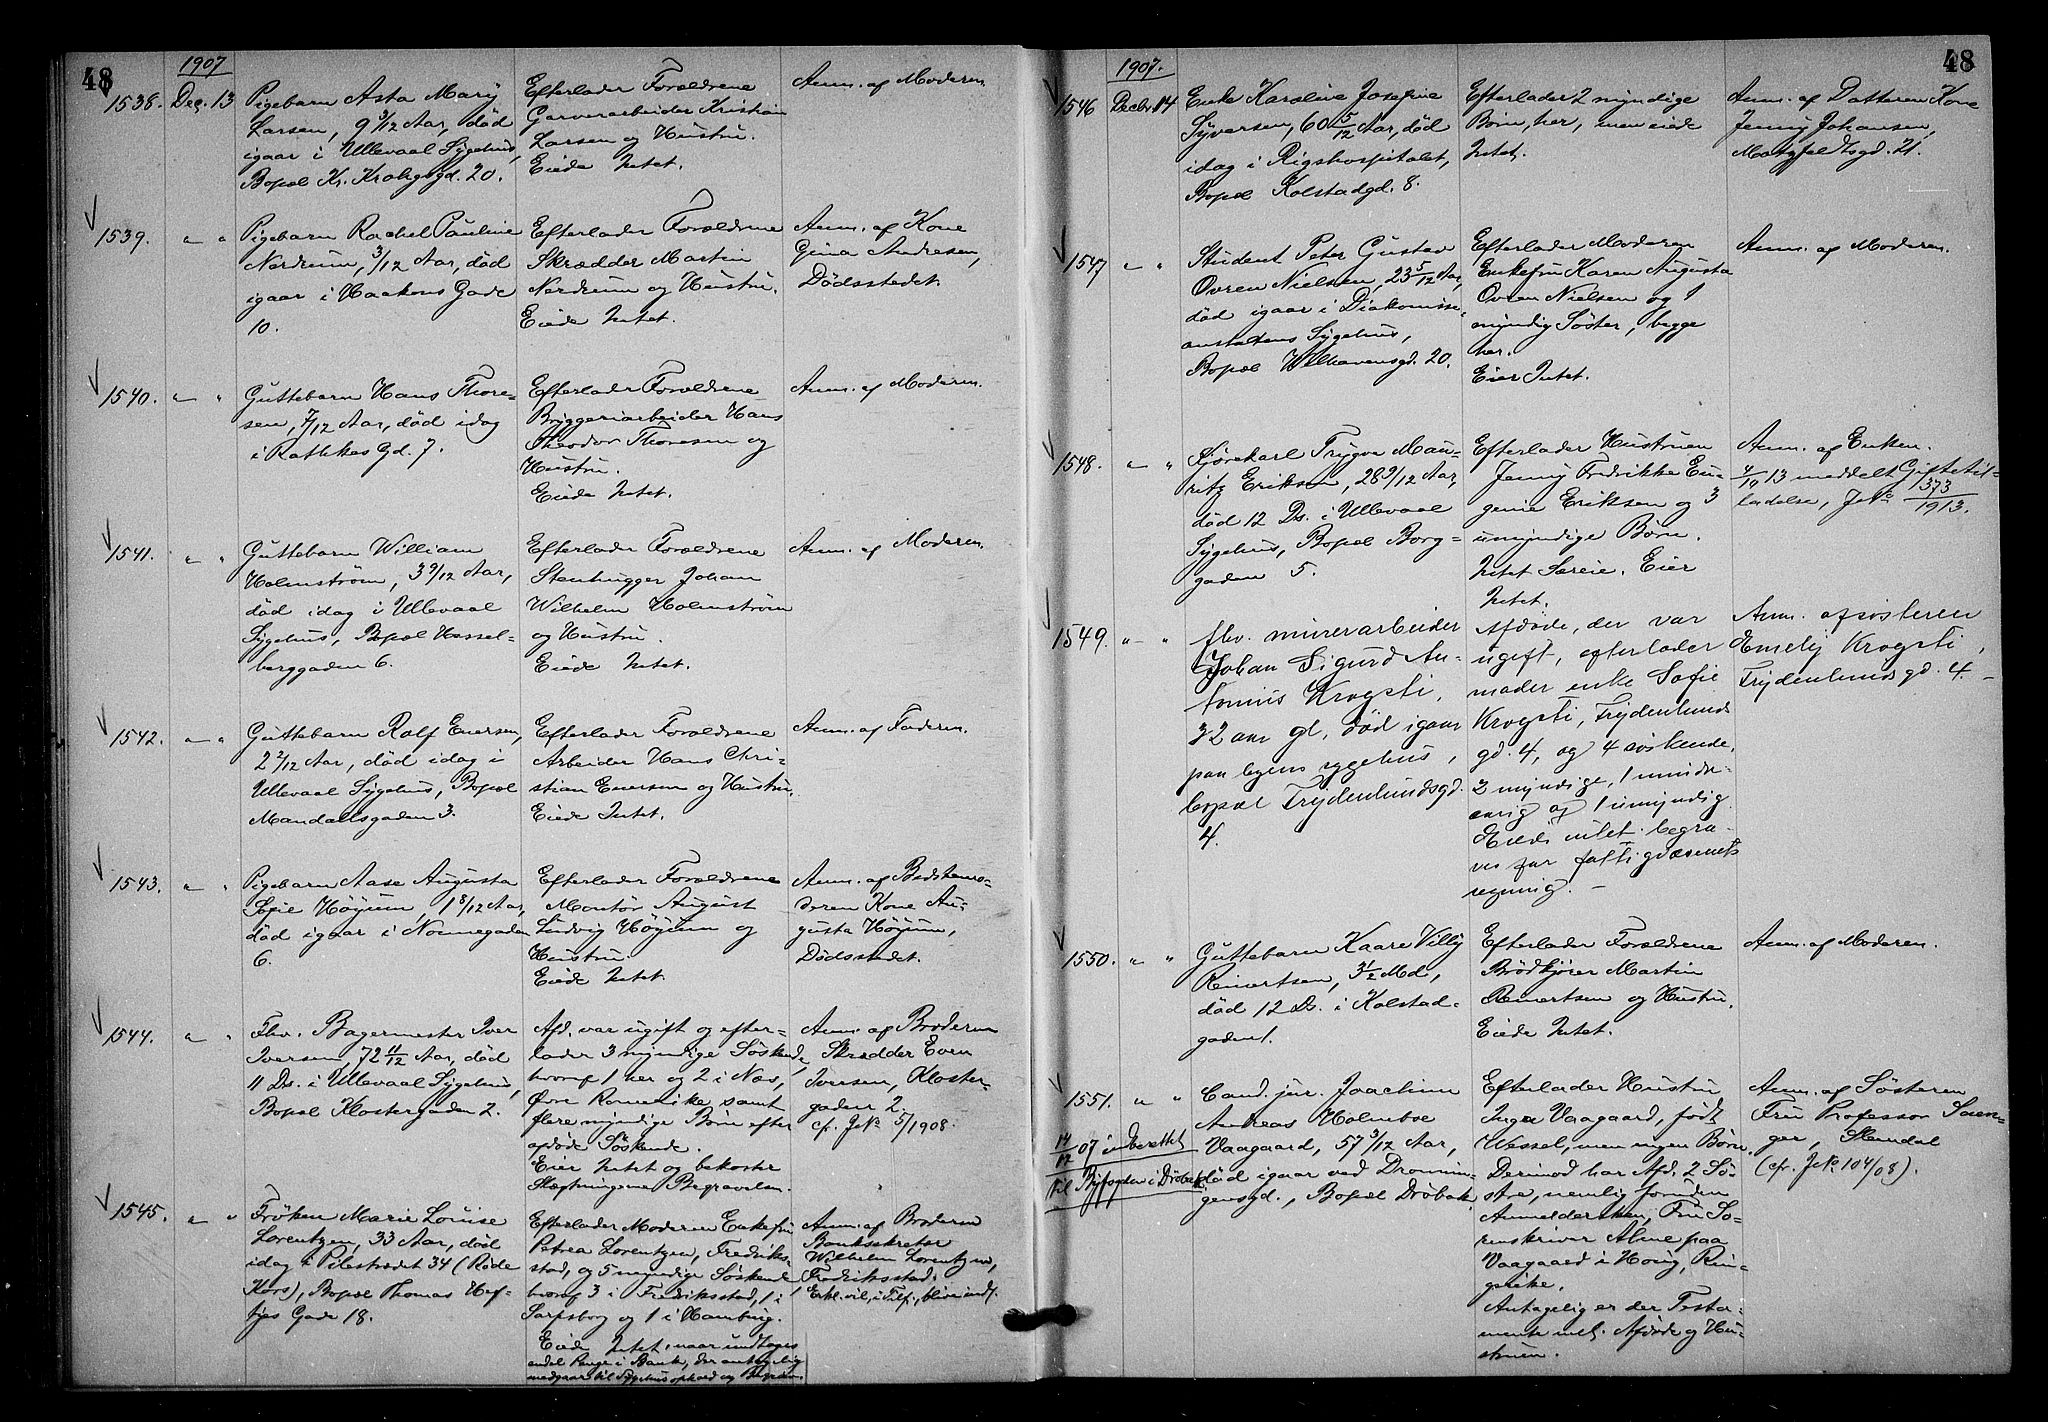 48
1907
1538. Dec. 13
Pigebarn Asta Mary
Larsen, 9 3/12 Aar, død
igaar i Ullevaal Sygehus,
Bopæl Kr. Krohgsgd. 20.
Efterlader Forældrene
Garverarbeider Kristian
Larsen og Hustru.
Eiede Intet.
Anm. af Moderen.
1539. " - "
Pigebarn Rachel Pauline
Nordrum, 3/12 Aar, død
igaar i Haakons Gade
10.
Efterlader Forældrene
Skrædder Martin
Nordrum og Hustru.
Eiede Intet.
Anm. af Kone
Gina Andresen,
Dødsstedet.
1540. " - "
Guttebarn Hans Thore-
sen, 7/12 Aar, død idag
i Rathkes Gd. 7.
Efterlader Forældrene
Bryggeriarbeider Hans
Theodor Thoresen og
Hustru.
Eiede Intet.
Anm. af Moderen.
1541. " "
Guttebarn William
Holmstrøm, 3 9/12 Aar,
død idag i Ullevaal
Sygehus, Bopæl Hessel-
berggaden 6.
Efterlader Forældrene
Stenhugger Johan
Wilhelm Holmstrøm
og Hustru.
Eiede Intet.
Anm. af Moderen.
1542. " - "
Guttebarn Rolf Enersen,
2 2/12 Aar, død idag i
Ullevaal Sygehus, Bopæl
Mandallsgaden 3.
Efterlader Forældrene
Arbeider Hans Chri-
stian Enersen og Hustru.
Eiede Intet.
Anm. af Faderen.
1543. " "
Pigebarn Aase Augusta
Sofie Høyum, 1 8/12 Aar,
død igaar i Nonnegaden
6.
Efterlader Forældrene
Montør August
Ludvig Høyum og
Hustru.
Eiede Intet.
Anm. af Bedstemo-
deren Kone Au-
gusta Høyum,
Dødsstedet.
1544. " "
Fhv. Bagermester Iver
Iversen, 72 11/12 Aar, død
11 Ds. i Ullevaal Sygehus,
Bopæl Klostergaden 2.
Afd. var ugift og efter-
lader 3 myndige Søskende,
hvoraf 1 her og 2 i Næs,
Øvre Romerike samt
flere myndige Børn efter
afdøde Søskende.
Eier Intet og bekoster
Slægtningene Begravelsen.
Anm. af Broderen
Skrædder Even
Iversen, Kloster-
gaden 2.
cfr. JNo 5/1908.
1545. " "
Frøken Marie Louise
Lorentzen, 33 Aar, død
idag i Pilestrædet 34 (Røde
Kors), Bopæl Thomas Hef-
tyes Gade 18.
Efterlader Moderen Enkefru
Petrea Lorentzen, Fredriks-
stad, og 5 myndige Søskende
hvoraf 3 i Fredriksstad, 1 i
Sarpsborg og 1 i Hamburg.
Eiede Intet, naar undtages
endel Penge i Bank, der antagelig
medgaar til Sygehusophold og Begravelse.
Anm. af Broderen
Banksekretær
Wilhelm Lorentzen,
Fredriksstad.
Erkl. vil, i Tilf., blive indf.
48
1907.
1546 Decbr. 14
Enke Karoline Josefine
Syversen, 60 5/12 Aar, død
idag i Rigshospitalet,
Bopæl Kolstadgd. 8.
Efterlader 2 myndige
Børn, her, men eiede
Intet.
Anm. af Datteren Kone
Jenny Johansen,
Motzfeldtsgd. 21.
1547 " - "
Student Peter Gustav
Ovren Nielsen, 23 5/12 Aar,
død igaar i Diakonisse-
anstaltens Sygehus,
Bopæl Welhavensgd. 20.
Efterlader Moderen
Enkefru Karen Augusta
Ovren Nielsen og 1
myndig Søster, begge
her.
Eier Intet.
Anm. af Moderen.
1548. " - "
Kjørekarl Trygve Mau-
ritz Eriksen, 28 9/12 Aar,
død 12 Ds. i Ullevaal
Sygehus, Bopæl Borg-
gaden 5.
Efterlader Hustruen
Jenny Fredrikke Eu-
genie Eriksen og 3
umyndige Børn.
Intet Særeie. Eier
Intet.
Anm. af Enken.
4/10 13 meddelt Giftetil-
ladelse, JNo 373/1913.
1549. " - "
fhv. murerarbeider
Johan Sigurd An-
tonius Krogsti,
32 aar gl, død igaar
paa byens sygehus,
bopæl Frydenlundsgd.
4.
Afdøde, der var
ugift, efterlader
moder enke Sofie
Krogsti, Frydenlunds
gd. 4, og 4 søskende,
2 myndige, 1 mindre-
aarig og 1 umyndig.
Eiede intet. begra-
ves for fattigvæsenets
regning. -
Anm. af søsteren
Emely Krogsti,
Frydenlundsgd. 4. -
1550. " "
Guttebarn Kaare Villy
Reinertsen, 3 1/2 Md,
død 12 Ds. i Kolstad-
gaden 1.
Efterlader Forældrene
Brødkjører Martin
Reinertsen og Hustru.
Eiede Intet.
Anm. af Moderen.
1551. " "
14/12 07 i Skrettet
til Byfogden i Drøbak.
Cand. jur. Joachim
Andreas Holmboe
Vaagaard, 57 3/12 Aar,
død igaar ved Dronnin-
gensgd., Bopæl Drøbak.
Efterlader Hustru
Inger Vaagaard, født
Wessel, men ingen Børn.
Derimod har Afd. 2 Sø-
stre, nemlig foruden
Anmeldersken, Fru So-
renskriver Aline paa
Vaagaard i Houg, Rin-
gerike.
Antagelig er der Testa-
mente mel. Afdøde og Hu-
struen.
Anm. af Søsteren
Fru Professor Sæn-
ger, Slemdal
(cfr. JNo 104/08).